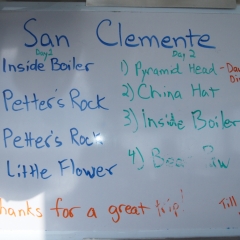 San Clemente
Day 1
Day 2
Inside Boiler
Petter's Rock
Petter's Rock
Little Flower
1) Pyramid Head -
2) China Hat
3) Inside Boiler
4)
hanks for a great trip!
Till